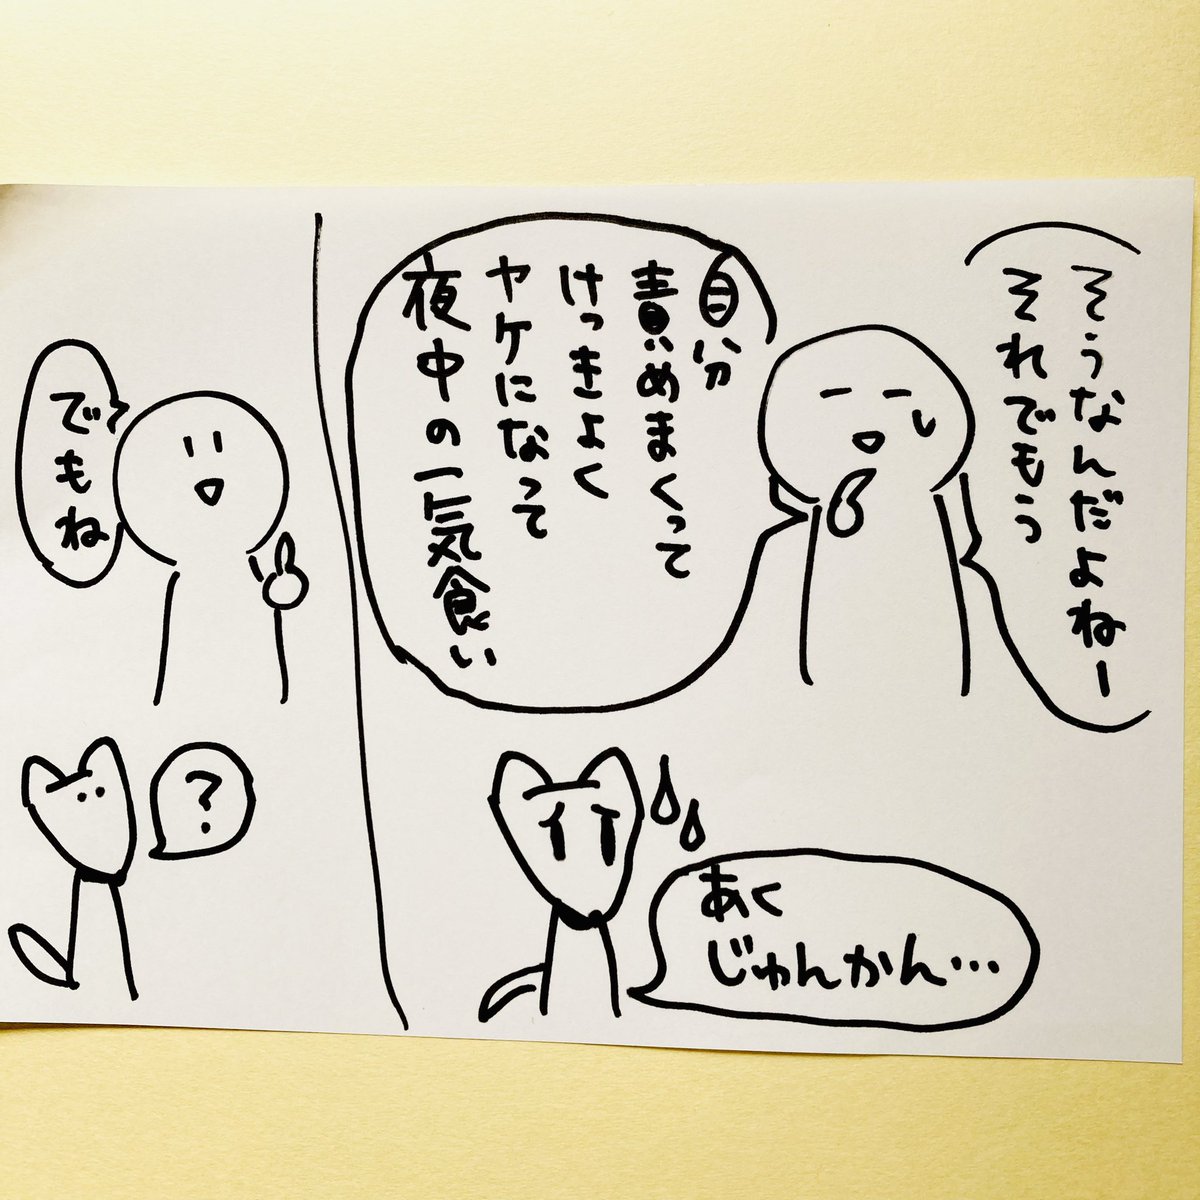 そうなんだよねー
それでもう
自分
責めまくって
けっきょく
ヤケになって
夜中の一気食い
あく
じゅんかん…
でもね
?